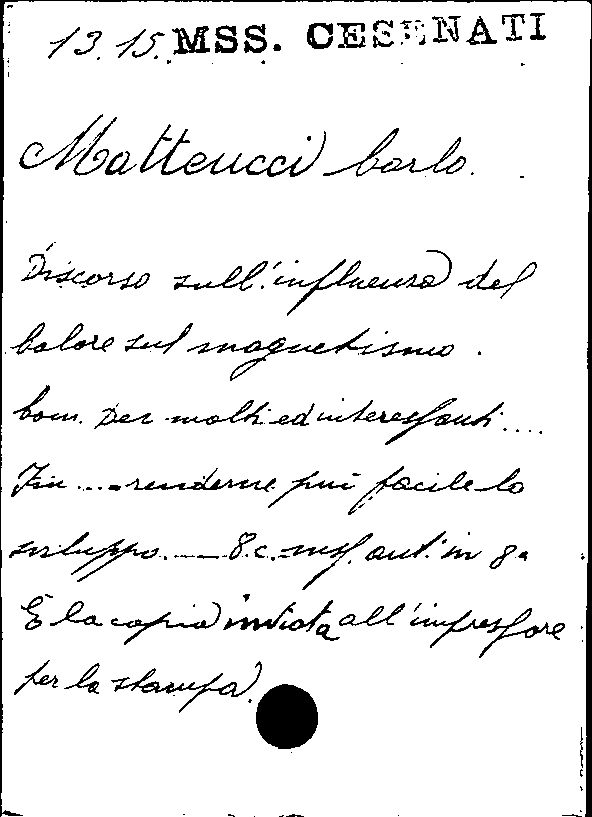 13.15. MSS. CESENATI
Matteucci Carlo.
Discorso sull'influenza del
Calore sul magnetismo.
Com. Dei molti ed interessanti....
Fin.... renderne più facile lo
sviluppo. — 8. c. mss. aut. in 8°
È la copia inviata all'impressore
per la stampa.